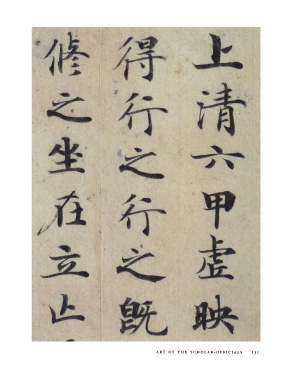 上清六甲虛映
得行之行之既
脩之坐在立亡
ART OF THE SCHOLAR-OFFICIALS 131